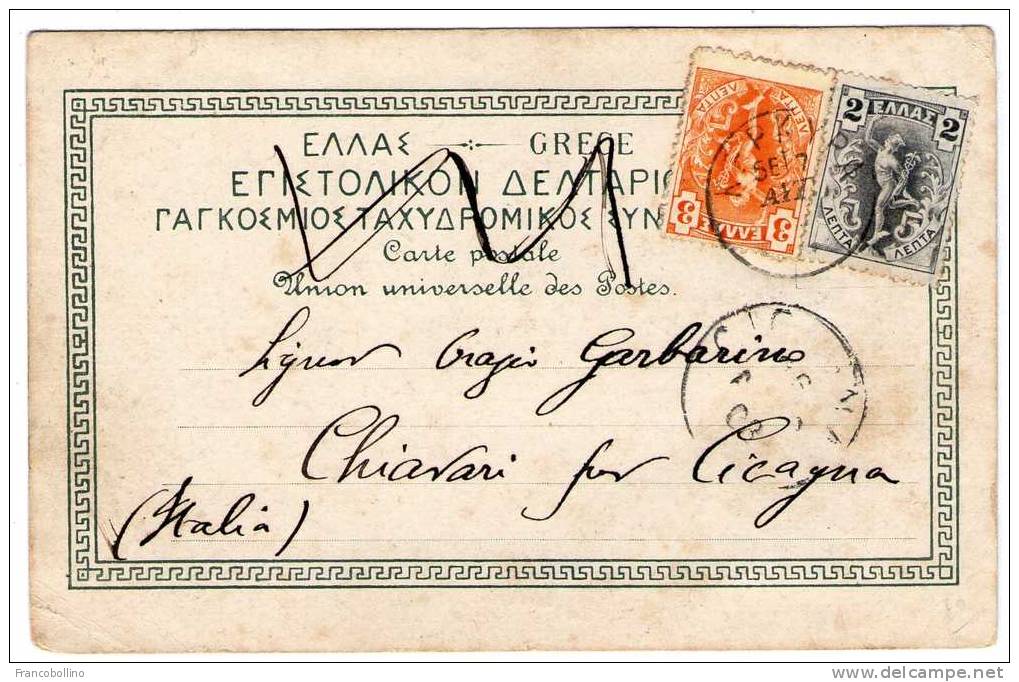 ΕΛΛΑΣ GRECE
ΕΓΙΣΤΟΛΙΚΟΝ ΔΕΛΤΑΡΙΟ
ΓΑΓΚΟΣΜΙΟΣ ΤΑΧΥΔΡΟΜΙΚΟΣ ΣΥΝ
Carte postale
Union universelle des Postes.
3 3
ΕΛΛΑΣ
ΛΕΠΤΑ ΛΕΠΤΑ
2 ΕΛΛΑΣ 2
ΛΕΠΤΑ ΛΕΠΤΑ
Signor Garbarino
Chiavari per Cicagna
(Italia)
Francobollino
www.delcampe.net